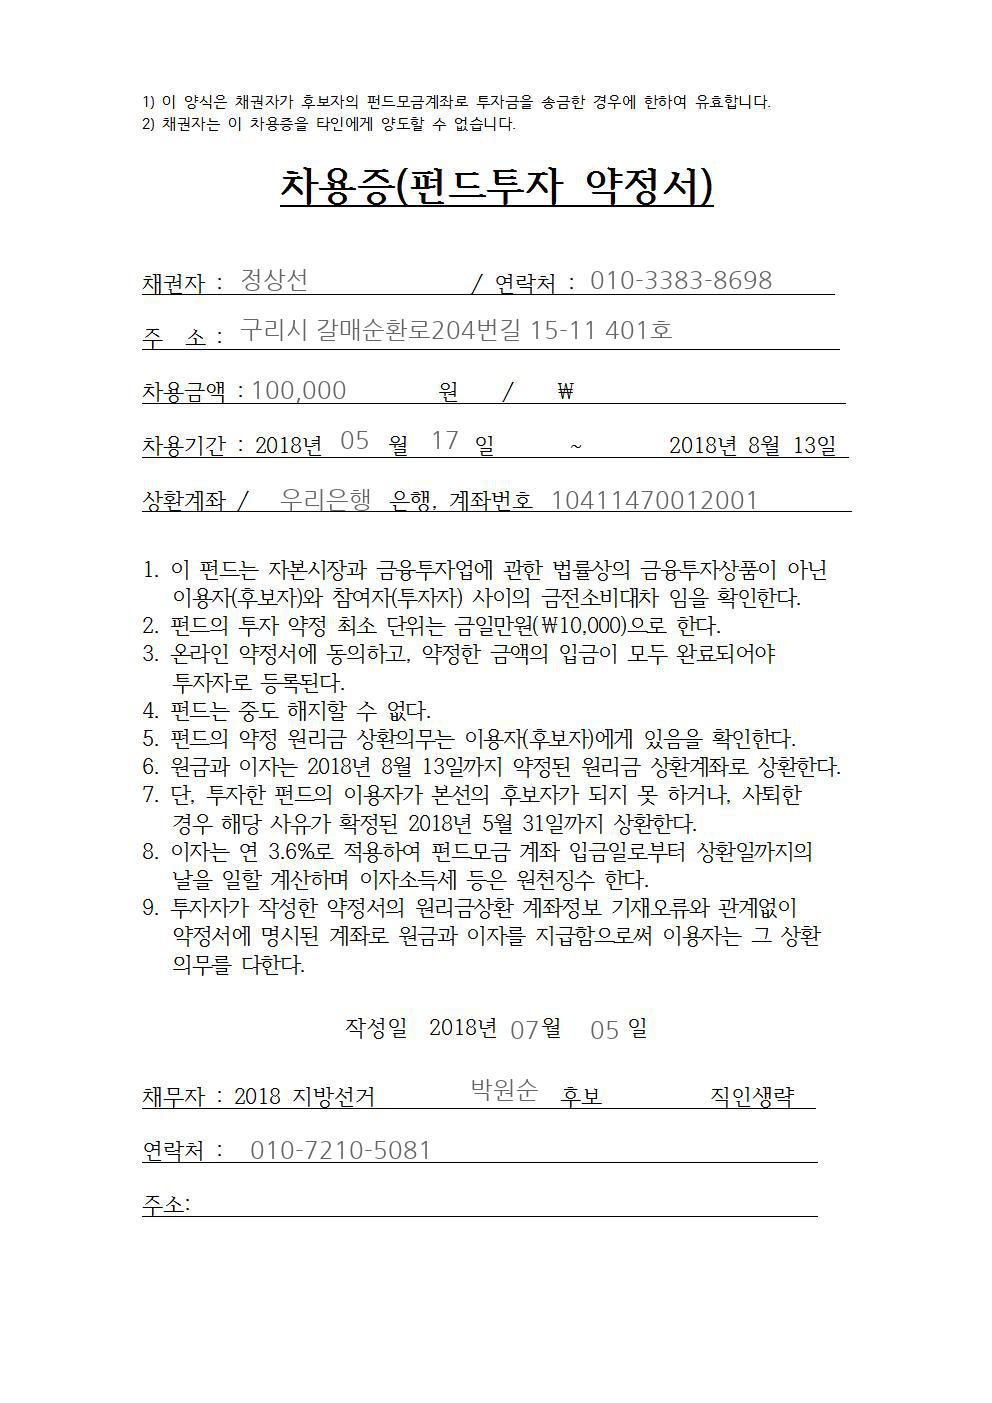 1) 이 양식은 채권자가 후보자의 펀드모금계좌로 투자금을 송금한 경우에 한하여 유효합니다.
2) 채권자는 이 차용증을 타인에게 양도할 수 없습니다.
차용증(펀드투자 약정서)
채권자 : 정상선 / 연락처 : 010-3383-8698
주 소 : 구리시 갈매순환로204번길 15-11 401호
차용금액 : 100,000 원 / ₩
차용기간 : 2018년 05 월 17 일 ~ 2018년 8월 13일
상환계좌 / 우리은행 은행, 계좌번호 10411470012001
1. 이 펀드는 자본시장과 금융투자업에 관한 법률상의 금융투자상품이 아닌
이용자(후보자)와 참여자(투자자) 사이의 금전소비대차 임을 확인한다.
2. 펀드의 투자 약정 최소 단위는 금일만원(₩10,000)으로 한다.
3. 온라인 약정서에 동의하고, 약정한 금액의 입금이 모두 완료되어야
투자자로 등록된다.
4. 펀드는 중도 해지할 수 없다.
5. 펀드의 약정 원리금 상환의무는 이용자(후보자)에게 있음을 확인한다.
6. 원금과 이자는 2018년 8월 13일까지 약정된 원리금 상환계좌로 상환한다.
7. 단, 투자한 펀드의 이용자가 본선의 후보자가 되지 못 하거나, 사퇴한
경우 해당 사유가 확정된 2018년 5월 31일까지 상환한다.
8. 이자는 연 3.6%로 적용하여 펀드모금 계좌 입금일로부터 상환일까지의
날을 일할 계산하며 이자소득세 등은 원천징수 한다.
9. 투자자가 작성한 약정서의 원리금상환 계좌정보 기재오류와 관계없이
약정서에 명시된 계좌로 원금과 이자를 지급함으로써 이용자는 그 상환
의무를 다한다.
작성일 2018년 07월 05 일
채무자 : 2018 지방선거 박원순 후보 직인생략
연락처 : 010-7210-5081
주소: